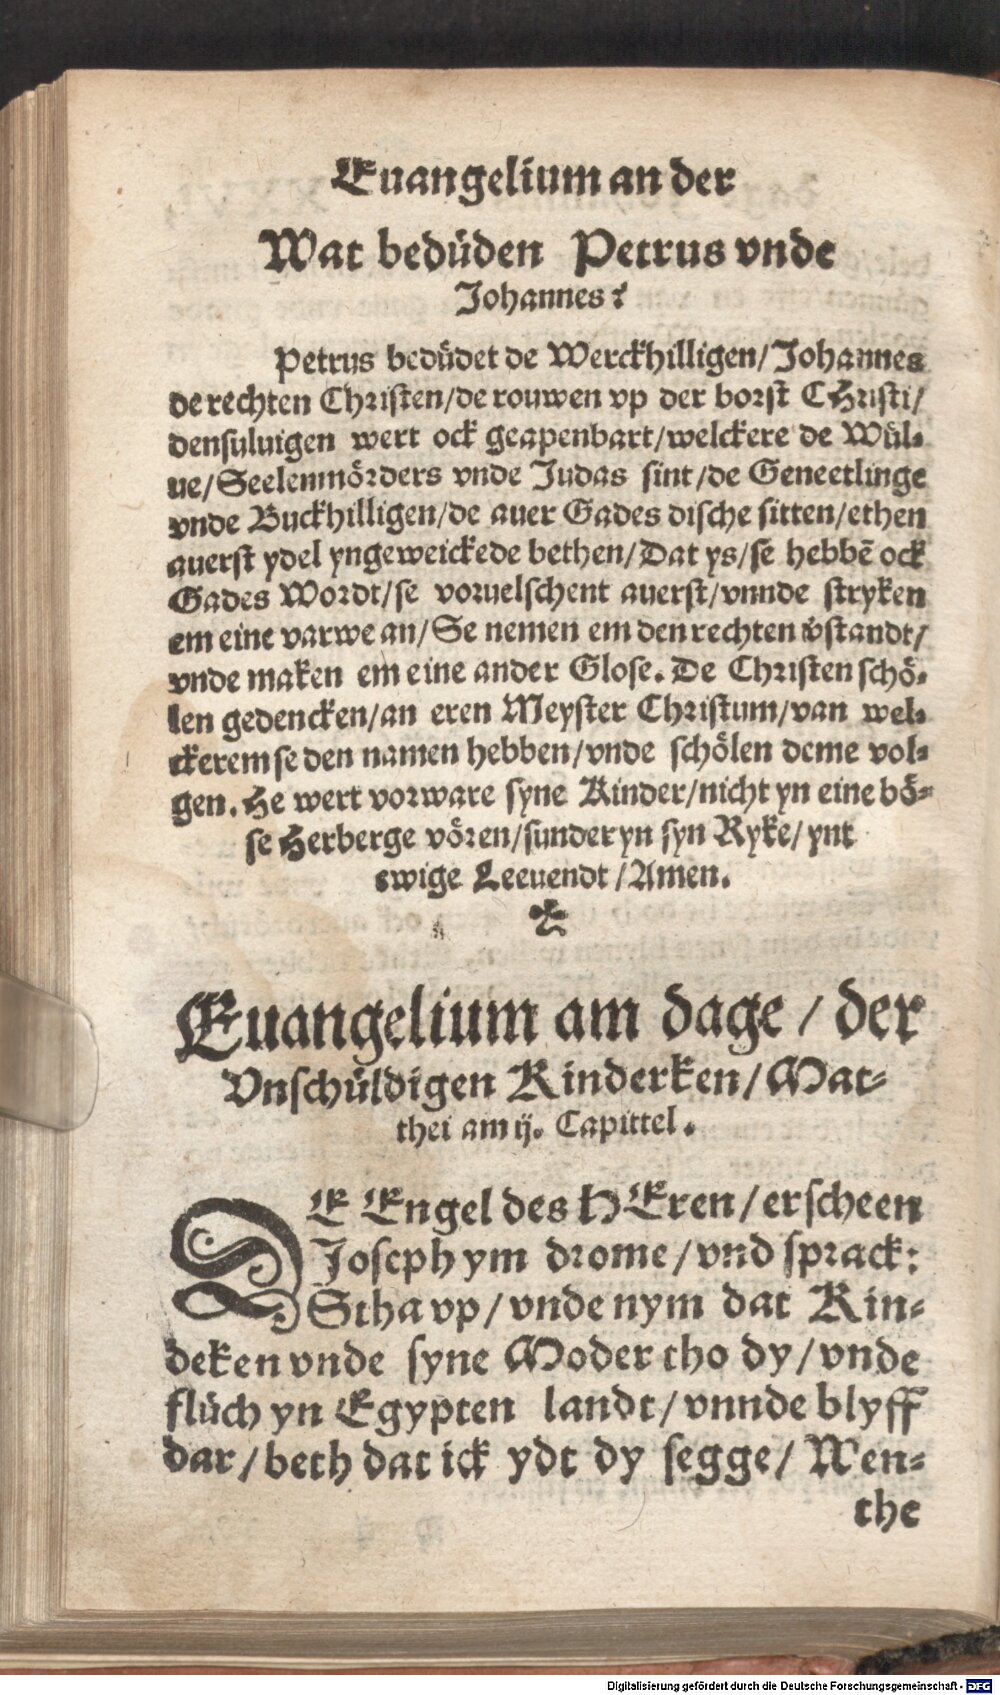 Euangelium an der
Wat bedüden Petrus vnde
Johannes?
Petrus bedüdet de Werckhilligen/Johannes
de rechten Christen/de rouwen vp der borst CHristi/
densuluigen wert ock geapenbart/welckere de Wül-
ue/Seelenmörders vnde Judas sint/de Geneetlinge
vnde Buckhilligen/de auer Gades dische sitten/ethen
auerst ydel yngeweickede bethen/Dat ys/se hebbē ock
Gades Wordt/se voruelschent auerst/vnnde stryken
em eine varwe an/Se nemen em den rechten v̈standt/
vnde maken em eine ander Glose. De Christen schö-
len gedencken/an eren Meyster Christum/van wel-
ckerem se den namen hebben/vnde schölen deme vol-
gen. He wert vorware syne Kinder/nicht yn eine bö-
se Herberge vören/sunder yn syn Ryke/ynt
ewige Leeuendt/Amen.
Euangelium am dage/der
Vnschüldigen Kinderken/Mat-
thei am ij. Capittel.
DE Engel des HEren/erscheen
Joseph ym drome/vnd sprack:
Stha vp/vnde nym dat Kin-
deken vnde syne Moder tho dy/vnde
flüch yn Egypten landt/vnnde blyff
dar/beth dat ick ydt dy segge/Wen-
the
Digitalisierung gefördert durch die Deutsche Forschungsgemeinschaft - DFG